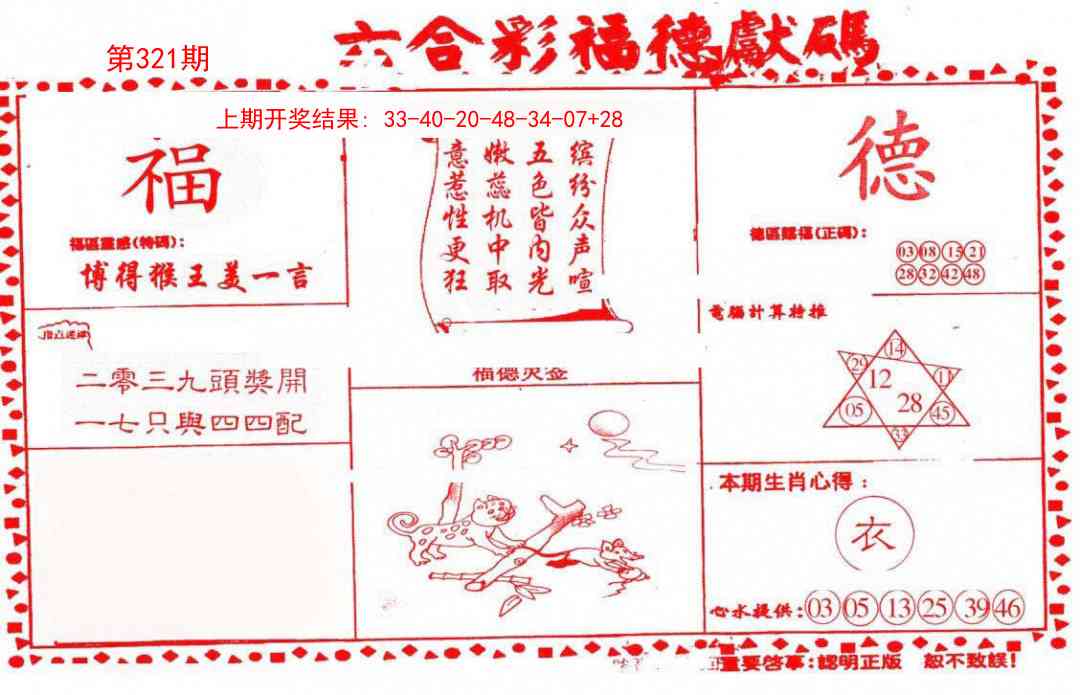 六合彩福德獻碼
第321期
上期开奖结果: 33-40-20-48-34-07+28
福
福區靈感(特碼):
博得猴王美一言
缤纷众声喧
五色皆内光
嫩蕊机中取
意惹性更狂
德
德區賜福(正碼):
03 08 15 21
28 32 42 48
二零三九頭獎開
一七只與四四配
電腦計算特推
14
29
11
12
28
05
45
33
福德灵签
本期生肖心得:
衣
心水提供:03 05 13 25 39 46
重要啓事:認明正版 恕不致誤!